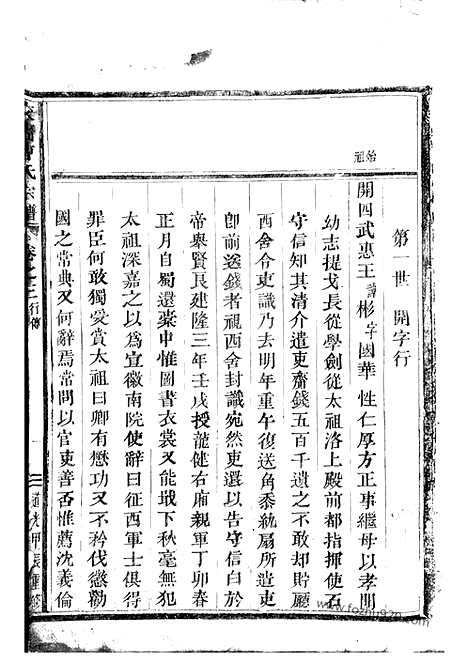 第一世 開字行
始祖
開四武惠王諱彬字國華 性仁厚方正事繼母以孝聞
幼志提戈長從學劍從太祖洛上殿前都指揮使石
守信知其清介遣吏齎錢五百千遺之不敢却貯廳
西舍令吏識乃去明年重午復送角黍紈扇所遣吏
卽前送錢者視西舍封識宛然吏還以告守信白於
帝舉賢良建隆三年壬戌授龍健右廂親軍丁卯春
正月自蜀還槖中惟圖書衣裳又能戢下秋毫無犯
太祖深嘉之以爲宣徽南院使辭曰征西軍士俱得
罪臣何敢獨受賞太祖曰卿有懋功又不矜伐懲勸
國之常典又何辭焉常問以官吏善否惟薦沈義倫
氏宗譜 卷之二 行傳
一
道光甲辰重修
www.fozhu920.com